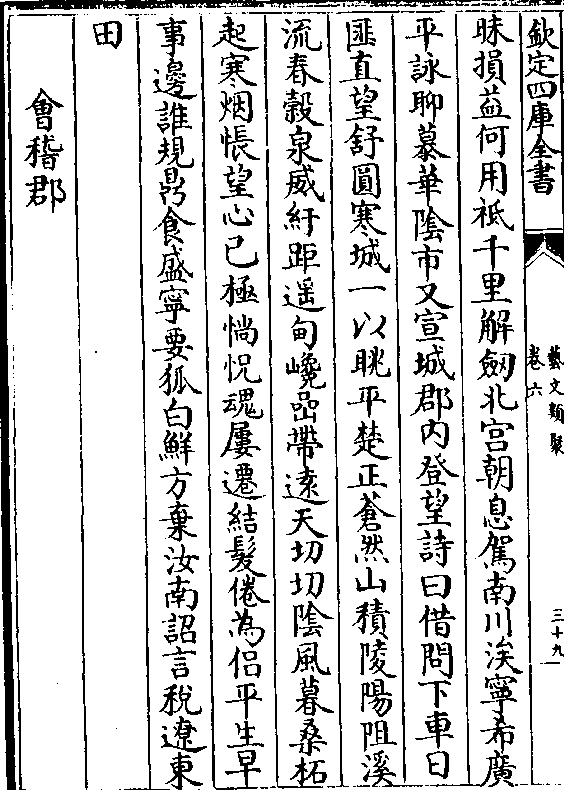 欽定四庫全書
藝文類聚
卷六
三十九
昧損益何用祗千里解劔北宫朝息駕南川涘寧希廣
平詠聊慕華陰市又宣城郡内登望詩曰借問下車日
匪直望舒圓寒城一以眺平楚正蒼然山積陵陽阻溪
流春穀泉威紆距遥甸巉嵒帶遠天切切陰風暮桑柘
起寒烟悵望心已極惝怳魂屢遷結髮倦為侣平生早
事邊誰規鼎食盛寧要狐白鮮方棄汝南詔言税遼東
田
會稽郡